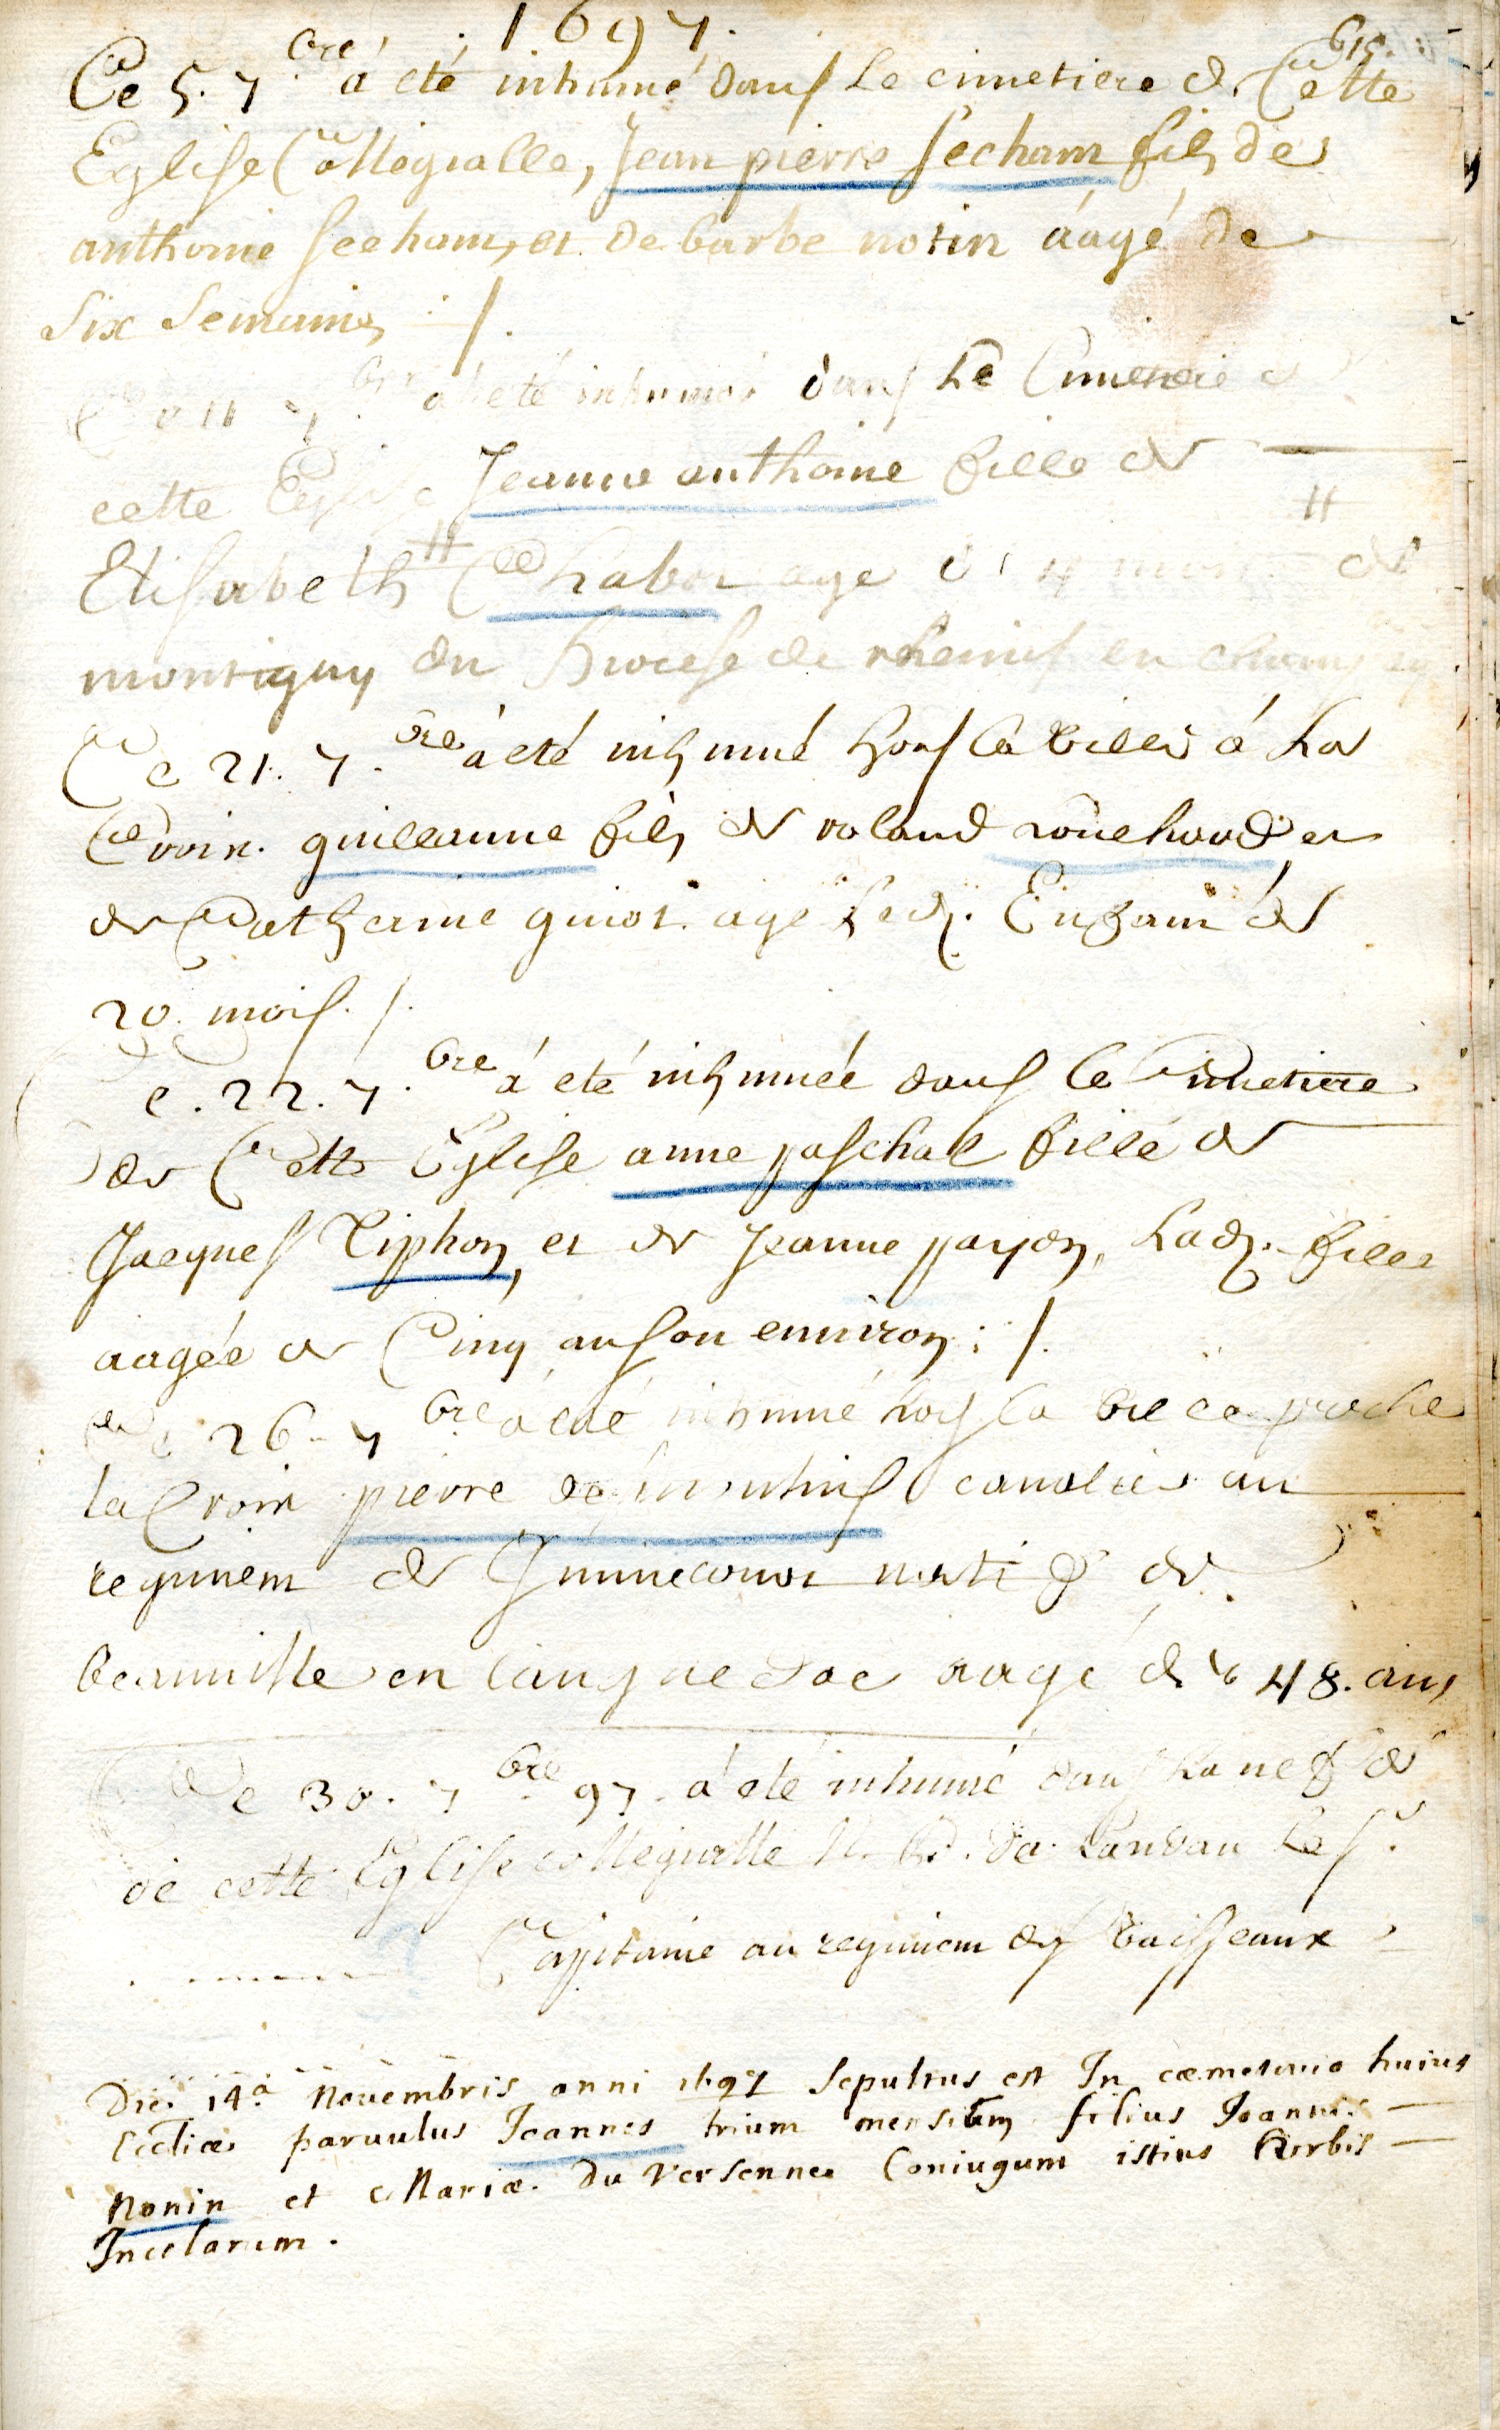 1697.
615.
Ce 5. 7.bre á eté inhumé dans Le cimetiere de Cette
Eglise Collegialle, Jean pierre Secham fils de
anthoine Secham, et de barbe notin áagé de
Six Semaines /.
Ce 11 7.bre a eté inhumeé dans Le Cimetiere de
cette Eglise Jeanne anthoine fille de
Elisabeth # Chabot age de 4 mois # de
montigny du Diocese de rheims en
Ce 21. 7.bre à eté inhumé hors la ville á La
Croix. guilleaume fils de roland et
de Catherine guiot. agé Led. Enfant de
20. mois. /.
Ce. 22. 7.bre á eté inhumée dans le Cimetiere
de Cette Eglise anne paschal fille de
Jacques Tiphon, et de Jeanne payon, Lad. fille
aagée de Cinq ans ou environ ; /.
Ce 26. 7.bre à eté inhumé hors la ville proche
la Croix pierre de cavalier au
regiment de natif de
en languedoc aagé de 48. ans
Ce 30. 7.bre 97. a eté inhumé dans La nef de
de cette Eglise collegialle N. D. de Landau Le Sr.
Capitaine au regiment des Vaisseaux
Die. 14.a Nouembris anni 1697 Sepultus est In cæmeterio huius
Ecclæ paruulus Joannes trium mensium filius Joannis
Nonin et Mariæ. Du Versennes Coniugum istius Urbis
Incolarum.